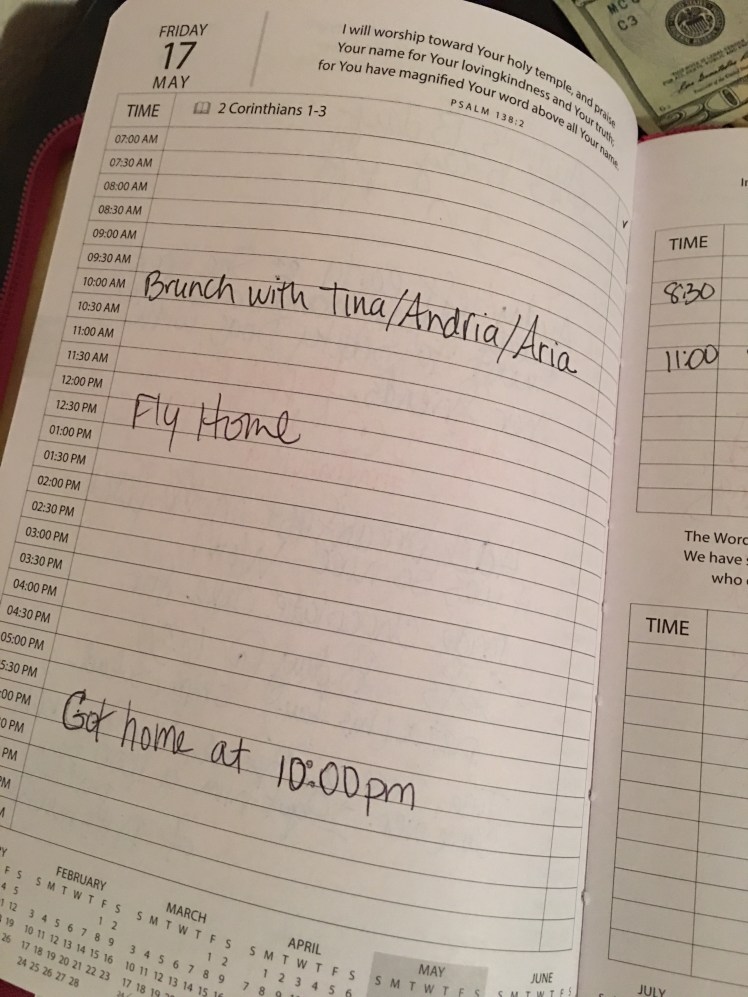 FRIDAY
17
MAY
I will worship toward Your holy temple, and praise
Your name for Your lovingkindness and Your truth;
for You have magnified Your word above all Your name.
PSALM 138:2
TIME
2 Corinthians 1-3
07:00 AM
07:30 AM
08:00 AM
08:30 AM
09:00 AM
09:30 AM
10:00 AM Brunch with Tina/Andria/Aria
10:30 AM
11:00 AM
11:30 AM
12:00 PM
12:30 PM Fly Home
01:00 PM
01:30 PM
02:00 PM
02:30 PM
03:00 PM
03:30 PM
04:00 PM
04:30 PM
05:00 PM
5:30 PM
:00 PM Got home at 10:00pm
0 PM
PM
PM
FEBRUARY
S M T W T F S
1 2
3 4 5 6 7 8 9
10 11 12 13 14 15 16
17 18 19 20 21 22 23
24 25 26 27 28
MARCH
S M T W T F S
1 2
3 4 5 6 7 8 9
10 11 12 13 14 15 16
17 18 19
APRIL
S M T W T F S
1 2 3 4 5 6
7 8 9
MAY
S M T W T F S
JUNE
S M T W T F S
JULY
TIME
8:30
11:00
The Word
We have
who
TIME
C3